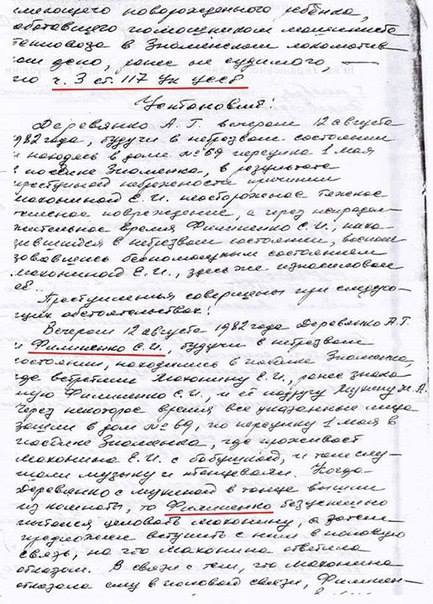 имеющего новорожденного ребёнка,
работавшего помощником машиниста
тепловоза в Знаменском локомотив-
ном депо, ранее не судимого, —
по ч. 3 ст. 117 УК УССР
Установил:
Деревянко А. Г. вечером 12 августа
1982 года, будучи в нетрезвом состоянии
и находясь в доме № 69 переулка 1 Мая
в посёлке Знаменка, в результате
преступной небрежности причинил
Махониной Е. И. неосторожное тяжкое
телесное повреждение, а через непродол-
жительное время Филипенко С. И., нахо-
дившийся в нетрезвом состоянии, восполь-
зовавшись беспомощным состоянием
Махониной Е. И., здесь же изнасиловал
её.
Преступления совершены при следую-
щих обстоятельствах:
Вечером 12 августа 1982 года Деревянко А. Г.
и Филипенко С. И., будучи в нетрезвом
состоянии, находились в посёлке Знаменка,
где встретили Махонину Е. И., ранее знако-
мую Филипенко С. И., и её подругу А.
Через некоторое время все указанные лица
зашли в дом № 69, по переулку 1 Мая в
посёлке Знаменка, где проживает
Махонина Е. И. с бабушкой, и там слу-
шали музыку и танцевали. Когда
Деревянко с в танце вышли
из комнаты, то Филипенко безуспешно
пытался целовать Махонину, а затем
предложил вступить с ним в половую
связь, на что Махонина ответила
отказом. В связи с тем, что Махонина
отказала ему в половой связи, Филипен-